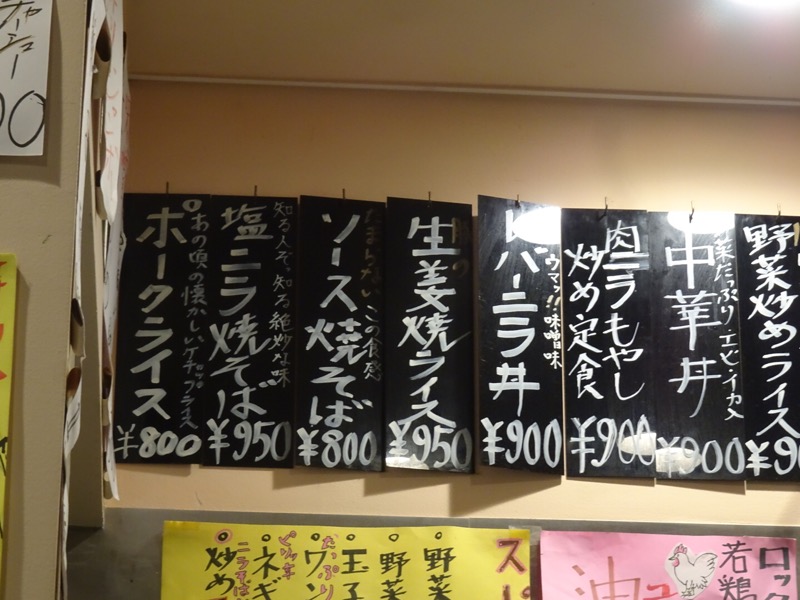 野菜炒めライス
中華丼
野菜たっぷり・エビ・イカ入
¥900
肉ニラもやし
炒め定食
¥900
レバーニラ丼
ウマッ!!味噌味
¥900
豚の
生姜焼ライス
¥950
たまんないこの食感
ソース焼そば
¥800
知る人ぞ、知る絶妙な味
塩ニラ焼そば
¥950
ポークライス
あの頃の懐かしいケチャップライス
¥800
チャーシュー
ス
野菜
野菜
玉子
たっぷり
ワン
ネギ
ピリッ辛
ニラそば
炒め
ロック
若鶏
油